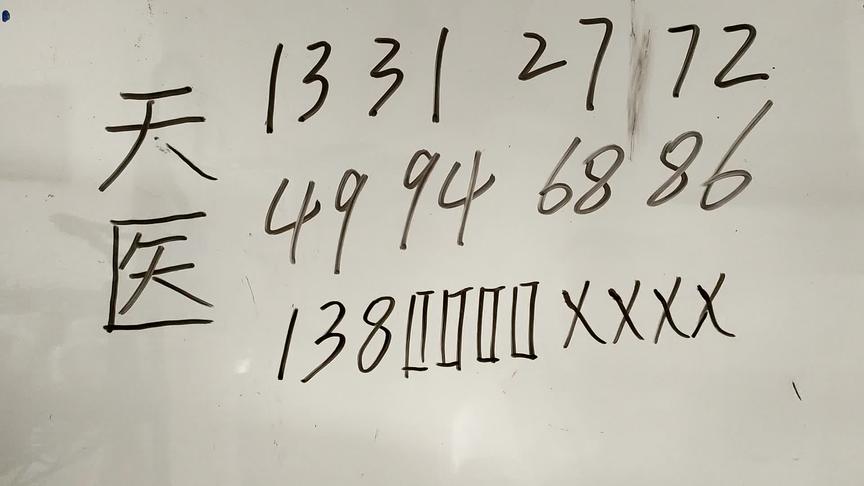 天医
13 31 27 72
49 94 68 86
138□□□□××××